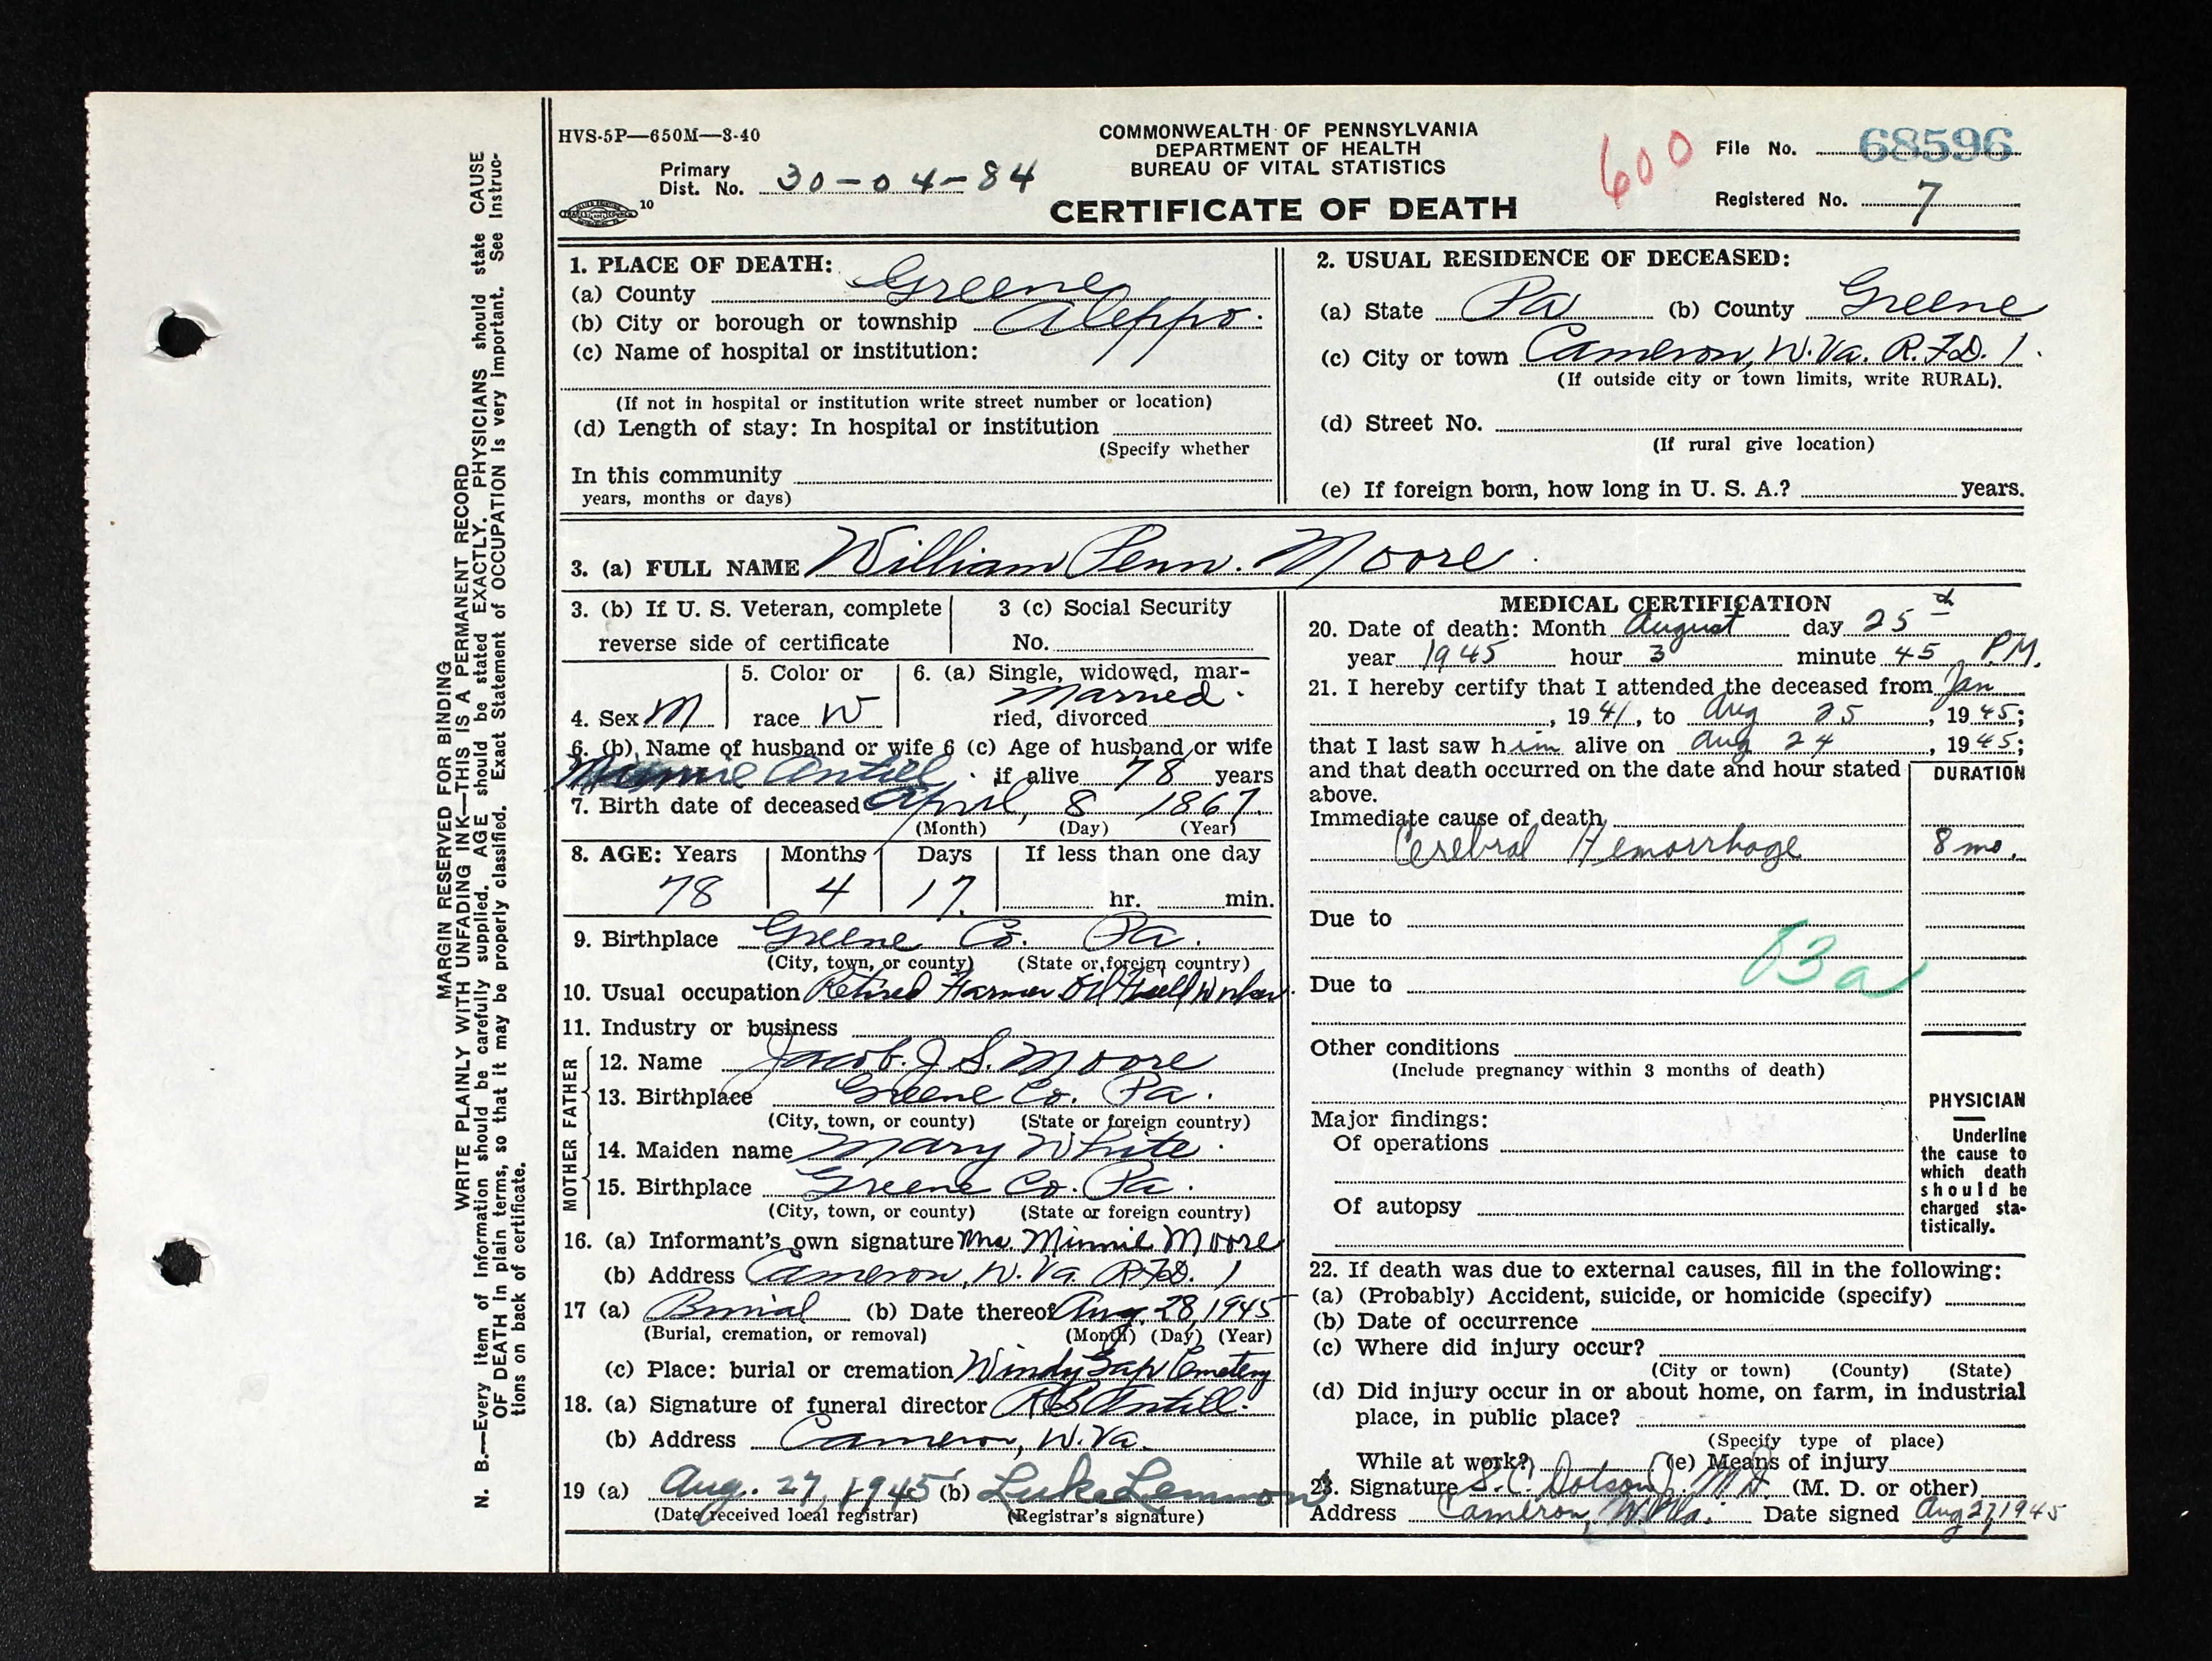 HVS-5P—650M—3-40
COMMONWEALTH OF PENNSYLVANIA
DEPARTMENT OF HEALTH
BUREAU OF VITAL STATISTICS
CERTIFICATE OF DEATH
Primary
Dist. No. 30-04-84
10
600
File No. 68596
Registered No. 7
1. PLACE OF DEATH:
(a) County Greene
(b) City or borough or township Aleppo.
(c) Name of hospital or institution:
(If not in hospital or institution write street number or location)
(d) Length of stay: In hospital or institution
(Specify whether
In this community
years, months or days)
2. USUAL RESIDENCE OF DECEASED:
(a) State Pa (b) County Greene
(c) City or town Cameron, W.Va. R.F.D. 1.
(If outside city or town limits, write RURAL).
(d) Street No.
(If rural give location)
(e) If foreign born, how long in U. S. A.? years.
3. (a) FULL NAME William Penn. Moore.
3. (b) If U. S. Veteran, complete
reverse side of certificate
3 (c) Social Security
No.
4. Sex M
5. Color or
race W
6. (a) Single, widowed, mar-
Married.
ried, divorced
6. (b) Name of husband or wife 6 (c) Age of husband or wife
Minnie Antill. if alive 78 years
7. Birth date of deceased April, 8 1867.
(Month) (Day) (Year)
8. AGE: Years Months Days If less than one day
78 4 17. hr. min.
9. Birthplace Greene Co. Pa.
(City, town, or county) (State or foreign country)
10. Usual occupation Retired Farmer Oil Field Worker.
11. Industry or business
FATHER
12. Name Jacob. J. S. Moore
13. Birthplace Greene Co. Pa.
(City, town, or county) (State or foreign country)
MOTHER
14. Maiden name Mary White.
15. Birthplace Greene Co. Pa.
(City, town, or county) (State or foreign country)
16. (a) Informant's own signature Mrs. Minnie Moore
(b) Address Cameron, W.Va. R.F.D. 1
17 (a) Burial (b) Date thereof Aug. 28, 1945
(Burial, cremation, or removal) (Month) (Day) (Year)
(c) Place: burial or cremation Windy Gap Cemetery
18. (a) Signature of funeral director Antill.
(b) Address Cameron, W.Va.
19 (a) Aug. 27, 1945 (b) Luke Lemmon
(Date received local registrar) (Registrar's signature)
MEDICAL CERTIFICATION
20. Date of death: Month August day 25
year 1945 hour 3 minute 45 P.M.
21. I hereby certify that I attended the deceased from Jan
, 1941, to Aug 25, 1945;
that I last saw him alive on Aug 24, 1945;
and that death occurred on the date and hour stated
above.
DURATION
Immediate cause of death
Cerebral Hemorrhage 8 mo.
Due to
83a
Due to
Other conditions
(Include pregnancy within 3 months of death)
Major findings:
Of operations
Of autopsy
PHYSICIAN
Underline
the cause to
which death
should be
charged sta-
tistically.
22. If death was due to external causes, fill in the following:
(a) (Probably) Accident, suicide, or homicide (specify)
(b) Date of occurrence
(c) Where did injury occur?
(City or town) (County) (State)
(d) Did injury occur in or about home, on farm, in industrial
place, in public place?
(Specify type of place)
While at work? (e) Means of injury
23. Signature S. C. Dotson, M.D. (M. D. or other)
Address Cameron, W.Va. Date signed Aug 27, 1945
MARGIN RESERVED FOR BINDING
WRITE PLAINLY WITH UNFADING INK—THIS IS A PERMANENT RECORD
N. B.—Every item of information should be carefully supplied. AGE should be stated EXACTLY. PHYSICIANS should state CAUSE
OF DEATH in plain terms, so that it may be properly classified. Exact Statement of OCCUPATION is very important. See Instruc-
tions on back of certificate.